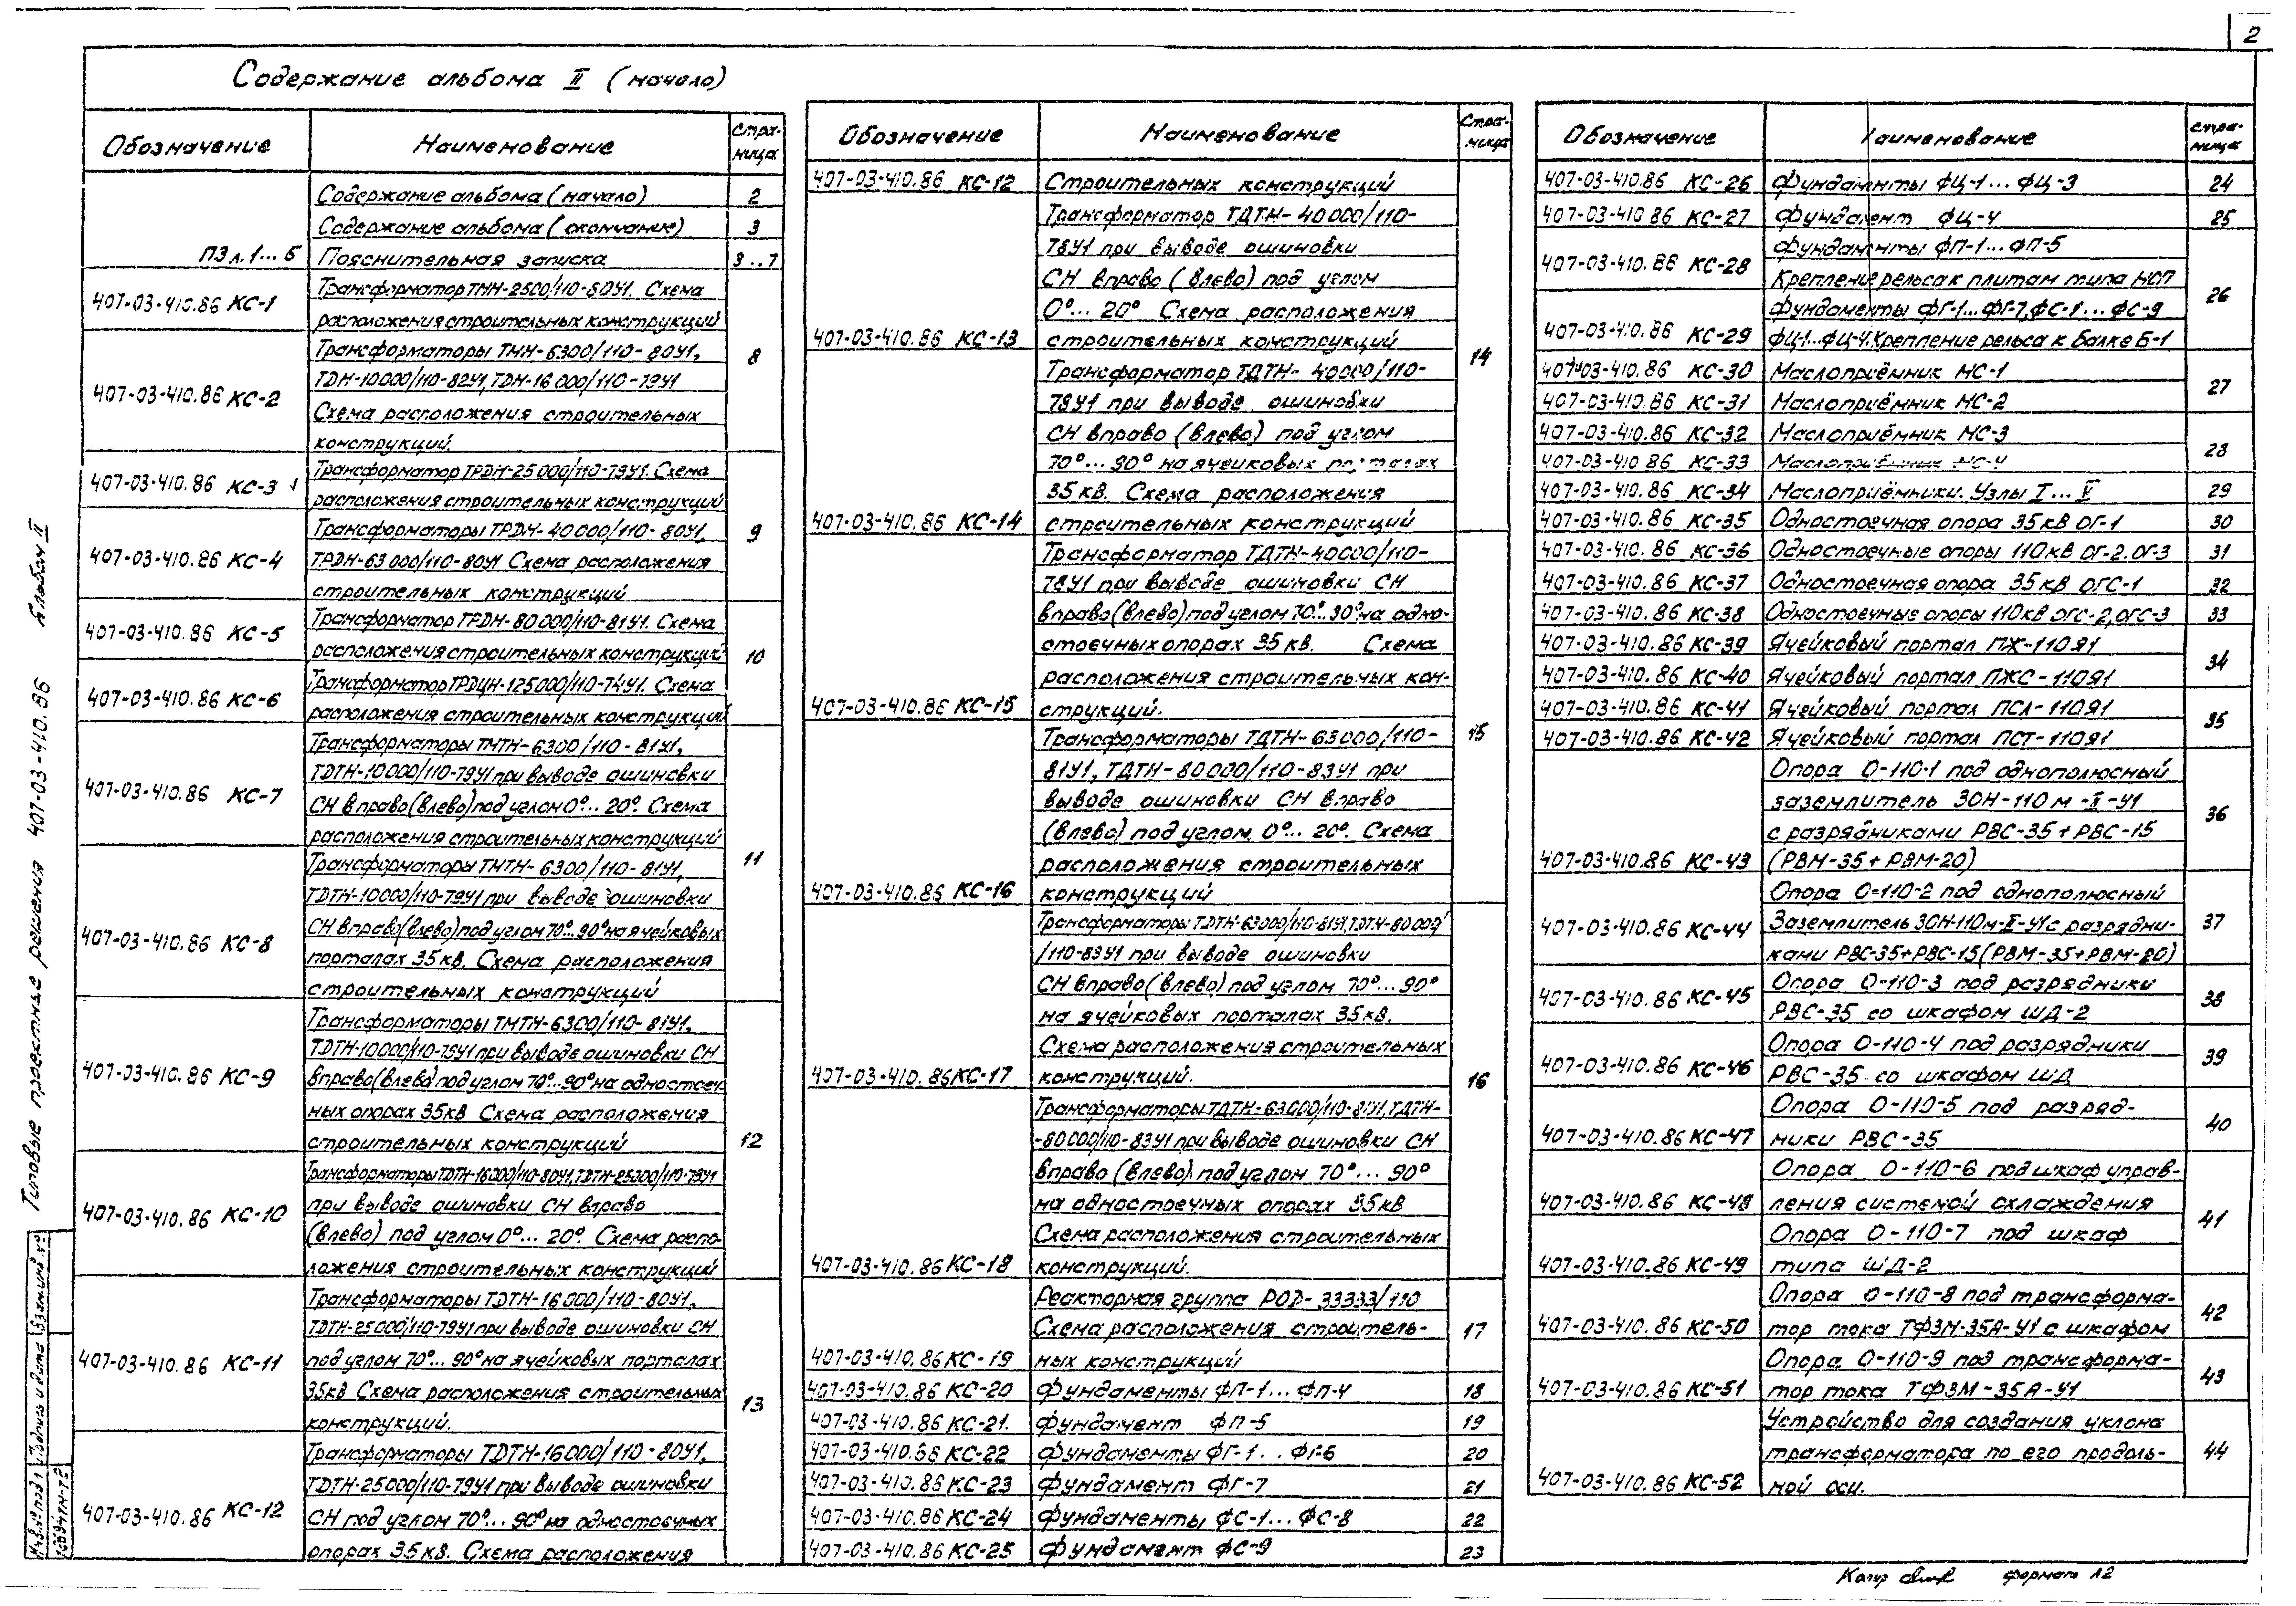 2
Содержание альбома II (начало)
Обозначение Наименование Стра-
ница
Содержание альбома (начало) 2
Содержание альбома (окончание) 3
ПЗ л.1...5 Пояснительная записка 3...7
407-03-410.86 КС-1 Трансформатор ТМН-2500/110-80У1. Схема
расположения строительных конструкций
8
407-03-410.86 КС-2 Трансформаторы ТМН-6300/110-80У1,
ТДН-10000/110-82У1, ТДН-16000/110-79У1
Схема расположения строительных
конструкций.
407-03-410.86 КС-3 Трансформатор ТРДН-25000/110-79У1. Схема
расположения строительных конструкций
9
407-03-410.86 КС-4 Трансформаторы ТРДН-40000/110-80У1,
ТРДН-63000/110-80У1 Схема расположения
строительных конструкций
407-03-410.86 КС-5 Трансформатор ТРДН-80000/110-81У1. Схема
расположения строительных конструкций
10
407-03-410.86 КС-6 Трансформатор ТРДЦН-125000/110-74У1. Схема
расположения строительных конструкций
407-03-410.86 КС-7 Трансформаторы ТМТН-6300/110-81У1,
ТДТН-10000/110-79У1 при выводе ошиновки
СН вправо (влево) под углом 0°...20°. Схема
расположения строительных конструкций
11
407-03-410.86 КС-8 Трансформаторы ТМТН-6300/110-81У1,
ТДТН-10000/110-79У1 при выводе ошиновки
СН вправо (влево) под углом 70°...90° на ячейковых
порталах 35кв. Схема расположения
строительных конструкций
407-03-410.86 КС-9 Трансформаторы ТМТН-6300/110-81У1,
ТДТН-10000/110-79У1 при выводе ошиновки СН
вправо (влево) под углом 70°...90° на одностоеч-
ных опорах 35кв Схема расположения
строительных конструкций
12
407-03-410.86 КС-10 Трансформаторы ТДТН-16000/110-80У1, ТДТН-25000/110-79У1
при выводе ошиновки СН вправо
(влево) под углом 0°...20°. Схема распо-
ложения строительных конструкций
407-03-410.86 КС-11 Трансформаторы ТДТН-16000/110-80У1,
ТДТН-25000/110-79У1 при выводе ошиновки СН
под углом 70°...90° на ячейковых порталах
35кв Схема расположения строительных
конструкций.
13
407-03-410.86 КС-12 Трансформаторы ТДТН-16000/110-80У1,
ТДТН-25000/110-79У1 при выводе ошиновки
СН под углом 70°...90° на одностоечных
опорах 35кв. Схема расположения
Обозначение Наименование Стра-
ница
407-03-410.86 КС-12 Строительных конструкций
Трансформатор ТДТН-40000/110-
78У1 при выводе ошиновки
СН вправо (влево) под углом
0°...20° Схема расположения
407-03-410.86 КС-13 строительных конструкций
14
Трансформатор ТДТН-40000/110-
78У1 при выводе ошиновки
СН вправо (влево) под углом
70°...90° на ячейковых порталах
35кв. Схема расположения
407-03-410.86 КС-14 строительных конструкций
Трансформатор ТДТН-40000/110-
78У1 при выводе ошиновки СН
вправо (влево) под углом 70°...90° на одно-
стоечных опорах 35кв. Схема
расположения строительных кон-
407-03-410.86 КС-15 струкций.
15
Трансформаторы ТДТН-63000/110-
81У1, ТДТН-80000/110-83У1 при
выводе ошиновки СН вправо
(влево) под углом 0°...20°. Схема
расположения строительных
407-03-410.86 КС-16 конструкций
Трансформаторы ТДТН-63000/110-81У1, ТДТН-80000
/110-83У1 при выводе ошиновки
СН вправо (влево) под углом 70°...90°
на ячейковых порталах 35кв.
Схема расположения строительных
407-03-410.86 КС-17 конструкций.
16
Трансформаторы ТДТН-63000/110-81У1, ТДТН-
-80000/110-83У1 при выводе ошиновки СН
вправо (влево) под углом 70°...90°
на одностоечных опорах 35кв
Схема расположения строительных
407-03-410.86 КС-18 конструкций.
Реакторная группа РОД-33333/110
Схема расположения строитель- 17
407-03-410.86 КС-19 ных конструкций
407-03-410.86 КС-20 Фундаменты ФП-1...ФП-4 18
407-03-410.86 КС-21. Фундамент ФП-5 19
407-03-410.86 КС-22 Фундаменты ФГ-1...ФГ-6 20
407-03-410.86 КС-23 Фундамент ФГ-7 21
407-03-410.86 КС-24 Фундаменты ФС-1...ФС-8 22
407-03-410.86 КС-25 Фундамент ФС-9 23
Обозначение Наименование Стра-
ница
407-03-410.86 КС-26 Фундаменты ФЦ-1...ФЦ-3 24
407-03-410.86 КС-27 Фундамент ФЦ-4 25
407-03-410.86 КС-28 Фундаменты ФП-1...ФП-5
Крепление рельса к плитам типа НСП
26
407-03-410.86 КС-29 Фундаменты ФГ-1...ФГ-7, ФС-1...ФС-9
ФЦ-1...ФЦ-4. Крепление рельса к балке Б-1
407-03-410.86 КС-30 Маслоприёмник МС-1
27
407-03-410.86 КС-31 Маслоприёмник МС-2
407-03-410.86 КС-32 Маслоприёмник МС-3
28
407-03-410.86 КС-33 Маслоприёмник МС-4
407-03-410.86 КС-34 Маслоприёмники. Узлы I...V 29
407-03-410.86 КС-35 Одностоечная опора 35кв ОГ-1 30
407-03-410.86 КС-36 Одностоечные опоры 110кв ОГ-2. ОГ-3 31
407-03-410.86 КС-37 Одностоечная опора 35кв ОГС-1 32
407-03-410.86 КС-38 Одностоечные опоры 110кв ОГС-2, ОГС-3 33
407-03-410.86 КС-39 Ячейковый портал ПЖ-110Я1
34
407-03-410.86 КС-40 Ячейковый портал ПЖС-110Я1
407-03-410.86 КС-41 Ячейковый портал ПСЛ-110Я1
35
407-03-410.86 КС-42 Ячейковый портал ПСТ-110Я1
Опора О-110-1 под однополюсный
заземлитель ЗОН-110м-II-У1
с разрядниками РВС-35+РВС-15 36
407-03-410.86 КС-43 (РВМ-35+РВМ-20)
Опора О-110-2 под однополюсный
407-03-410.86 КС-44 Заземлитель ЗОН-110м-II-У1 с разрядни- 37
ками РВС-35+РВС-15 (РВМ-35+РВМ-20)
407-03-410.86 КС-45 Опора О-110-3 под разрядники
РВС-35 со шкафом ШД-2 38
407-03-410.86 КС-46 Опора О-110-4 под разрядники
РВС-35 со шкафом ШД 39
Опора О-110-5 под разряд-
407-03-410.86 КС-47 ники РВС-35 40
Опора О-110-6 под шкаф управ-
407-03-410.86 КС-48 ления системой охлаждения
41
Опора О-110-7 под шкаф
407-03-410.86 КС-49 типа ШД-2
Опора О-110-8 под трансформа-
407-03-410.86 КС-50 тор тока ТФЗМ-35А-У1 с шкафом 42
Опора О-110-9 под трансформа-
407-03-410.86 КС-51 тор тока ТФЗМ-35А-У1 43
Устройство для создания уклона
трансформатора по его продоль- 44
407-03-410.86 КС-52 ной оси.
Типовые проектные решения 407-03-410.86 Альбом II
Инв.№ подл. Подпись и дата Взам.инв.№
Копир формат А2